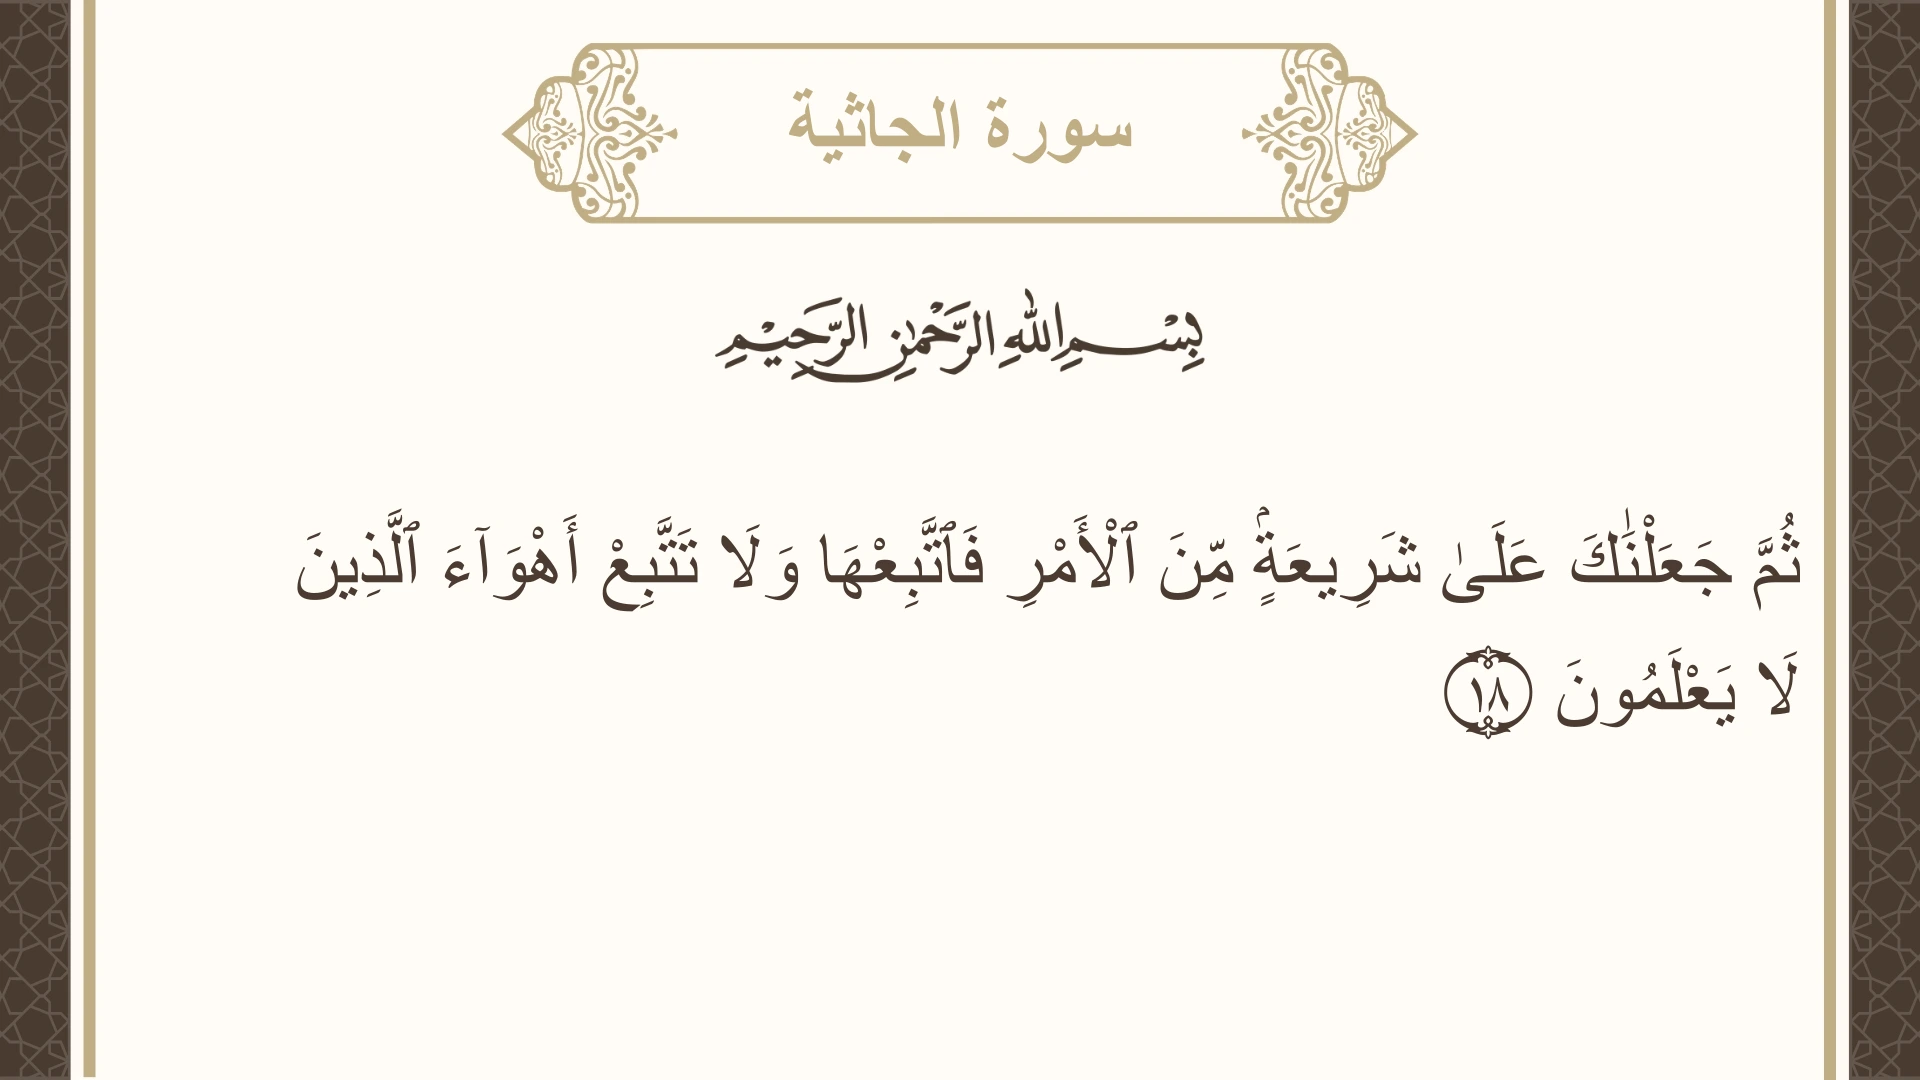 سورة الجاثية
بِسْمِ اللهِ الرَّحْمٰنِ الرَّحِيْمِ
ثُمَّ جَعَلْنَٰكَ عَلَىٰ شَرِيعَةٍۢ مِّنَ ٱلْأَمْرِ فَٱتَّبِعْهَا وَلَا تَتَّبِعْ أَهْوَآءَ ٱلَّذِينَ
لَا يَعْلَمُونَ ١٨